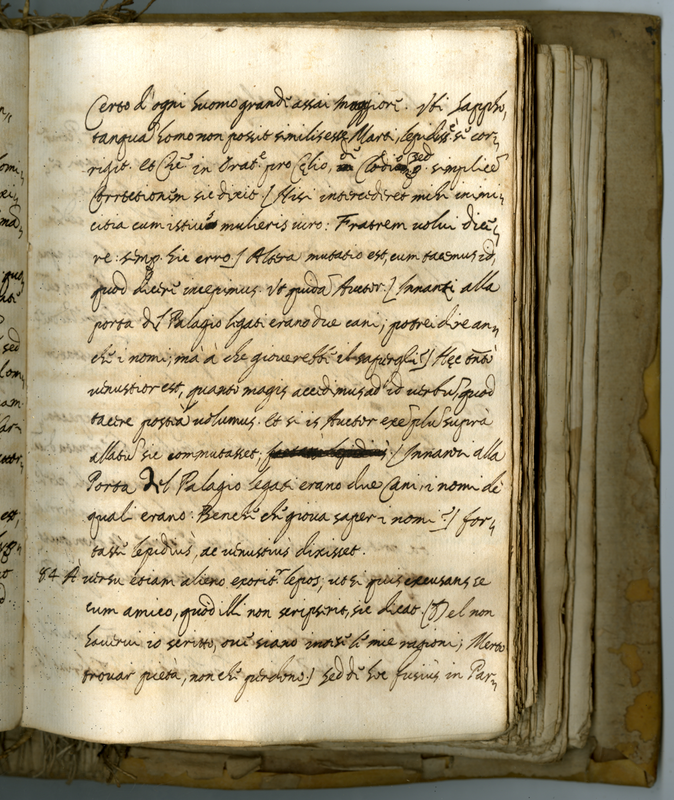 Certo d'ogni huomo grandi assai maggiori. Ubi Sappho,
tanquã homo non possit similis esse Marti, lepidiss.e se cor-
rigit. Et Cic: in Orat.e pro Celio, in Clodium sed simplicẽ
Corretionem sic dixit.] Nisi intercederet mihi inimi-
citia cum istius mulieris viro: Fratrem volui dice-
re: semp. hic erro] Altera mutatio est, cum tacemus id,
quod dicere incepimus. Ut quidã Auctor.] Innanti alla
porta del Palagio legati erano due cani; potrei dire an-
che i nomi; mà à che gioverebbe il sapergli?] Hęc tãto
venustior est, quanto magis accedimus ad id verbũ, quod
tacere postea volumus. Et si is Auctor exẽplũ suprà
allatũ sic commutasset. [Innanti alla
Porta del Palagio legati erano due Cani, i nomi de'
quali erano. Benche che giova saper i nomi?] for-
tasse lepidius, ac venustius dixisset.
84 A versu etiam alieno exorit.r lepos; ut si quis excusans se
cum amico, quod illi non scripserit, sic dicat. el non
haverui io scritto, ove siano intese le mie ragioni; Merto
trovar pietà, non che perdono.] Sed de hoc fusius in Par-